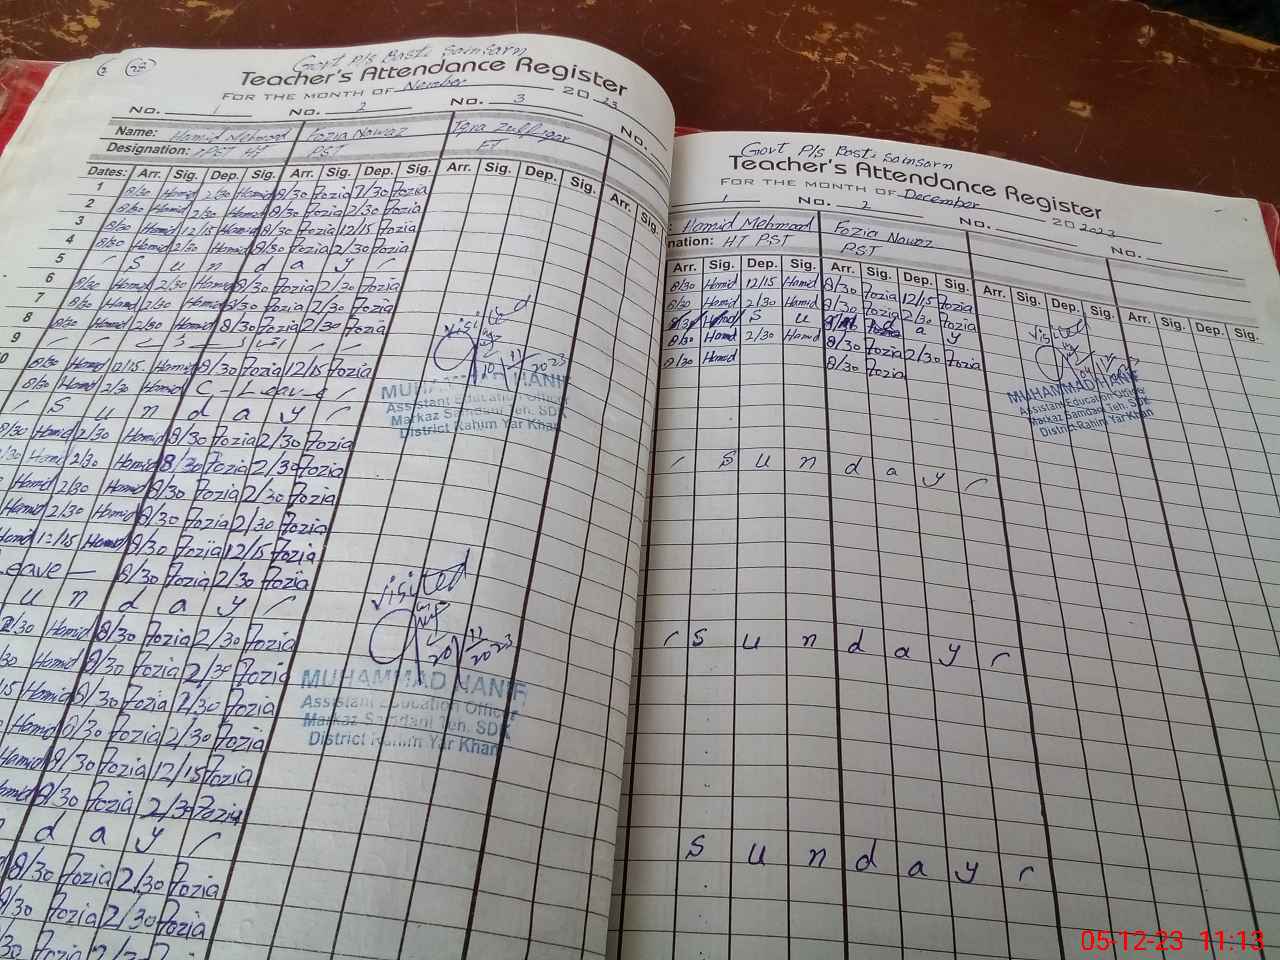 Govt P/S Basti Sainsarn
Teacher's Attendance Register
FOR THE MONTH OF November 20 23
No. 1 No. 2 No. 3 No.
Name: Hamid Mehmood Fozia Nawaz Iqra Zulfiqar
Designation: PST HT PST
Dates: Arr. Sig. Dep. Sig. Arr. Sig. Dep. Sig. Arr. Sig. Dep. Sig. Arr. Sig.
1 8/30 Hamid 2/30 Hamid 8/30 Fozia 2/30 Fozia
2 8/30 Hamid 2/30 Hamid 8/30 Fozia 2/30 Fozia
3 8/30 Hamid 12/15 Hamid 8/30 Fozia 12/15 Fozia
4 8/30 Hamid 2/30 Hamid 8/30 Fozia 2/30 Fozia
5 S u n d a y
6 8/30 Hamid 2/30 Hamid 8/30 Fozia 2/30 Fozia
7 8/30 Hamid 2/30 Hamid 8/30 Fozia 2/30 Fozia
8 8/30 Hamid 2/30 Hamid 8/30 Fozia 2/30 Fozia
9
8/30 Hamid 12/15 Hamid 8/30 Fozia 12/15 Fozia
8/30 Hamid 2/30 Hamid C - Leave
S u n d a y
8/30 Hamid 2/30 Hamid 8/30 Fozia 2/30 Fozia
8/30 Hamid 2/30 Hamid 8/30 Fozia 2/30 Fozia
Hamid 2/30 Hamid 8/30 Fozia 2/30 Fozia
Hamid 2/30 Hamid 8/30 Fozia 2/30 Fozia
Hamid 12/15 Hamid 8/30 Fozia 12/15 Fozia
Leave 8/30 Fozia 2/30 Fozia
u n d a y
2/30 Hamid 8/30 Fozia 2/30 Fozia
/30 Hamid 8/30 Fozia 2/30 Fozia
15 Hamid 8/30 Fozia 2/30 Fozia
Hamid 8/30 Fozia 2/30 Fozia
Hamid 8/30 Fozia 12/15 Fozia
8/30 Fozia 2/30 Fozia
d a y
8/30 Fozia 2/30 Fozia
8/30 Fozia 2/30 Fozia
/30 Fozia 2/30 Fozia
Visited
10/11/2023
MUHAMMAD HANIF
Assistant Education Officer
Markaz Samdani Teh. SDK
District Rahim Yar Khan
Visited
20/11/2023
MUHAMMAD HANIF
Assistant Education Officer
Markaz Samdani Teh. SDK
District Rahim Yar Khan
Govt P/S Basti Sainsarn
Teacher's Attendance Register
FOR THE MONTH OF December 20 2023
1 2 No. No.
Hamid Mehmood Fozia Nawaz
nation: HT PST PST
Arr. Sig. Dep. Sig. Arr. Sig. Dep. Sig. Arr. Sig. Dep. Sig. Arr. Sig. Dep. Sig.
8/30 Hamid 12/15 Hamid 8/30 Fozia 12/15 Fozia
8/30 Hamid 2/30 Hamid 8/30 Fozia 2/30 Fozia
S u n d a y
8/30 Hamid 2/30 Hamid 8/30 Fozia 2/30 Fozia
8/30 Hamid 8/30 Fozia
Visited
MUHAMMAD HANIF
Assistant Education Officer
Markaz Samdani Teh. SDK
District Rahim Yar Khan
S u n d a y
S u n d a y
S u n d a y
05-12-23 11:13